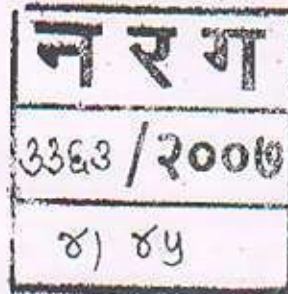 न र ग
३३६३ / २००७
४) ४५